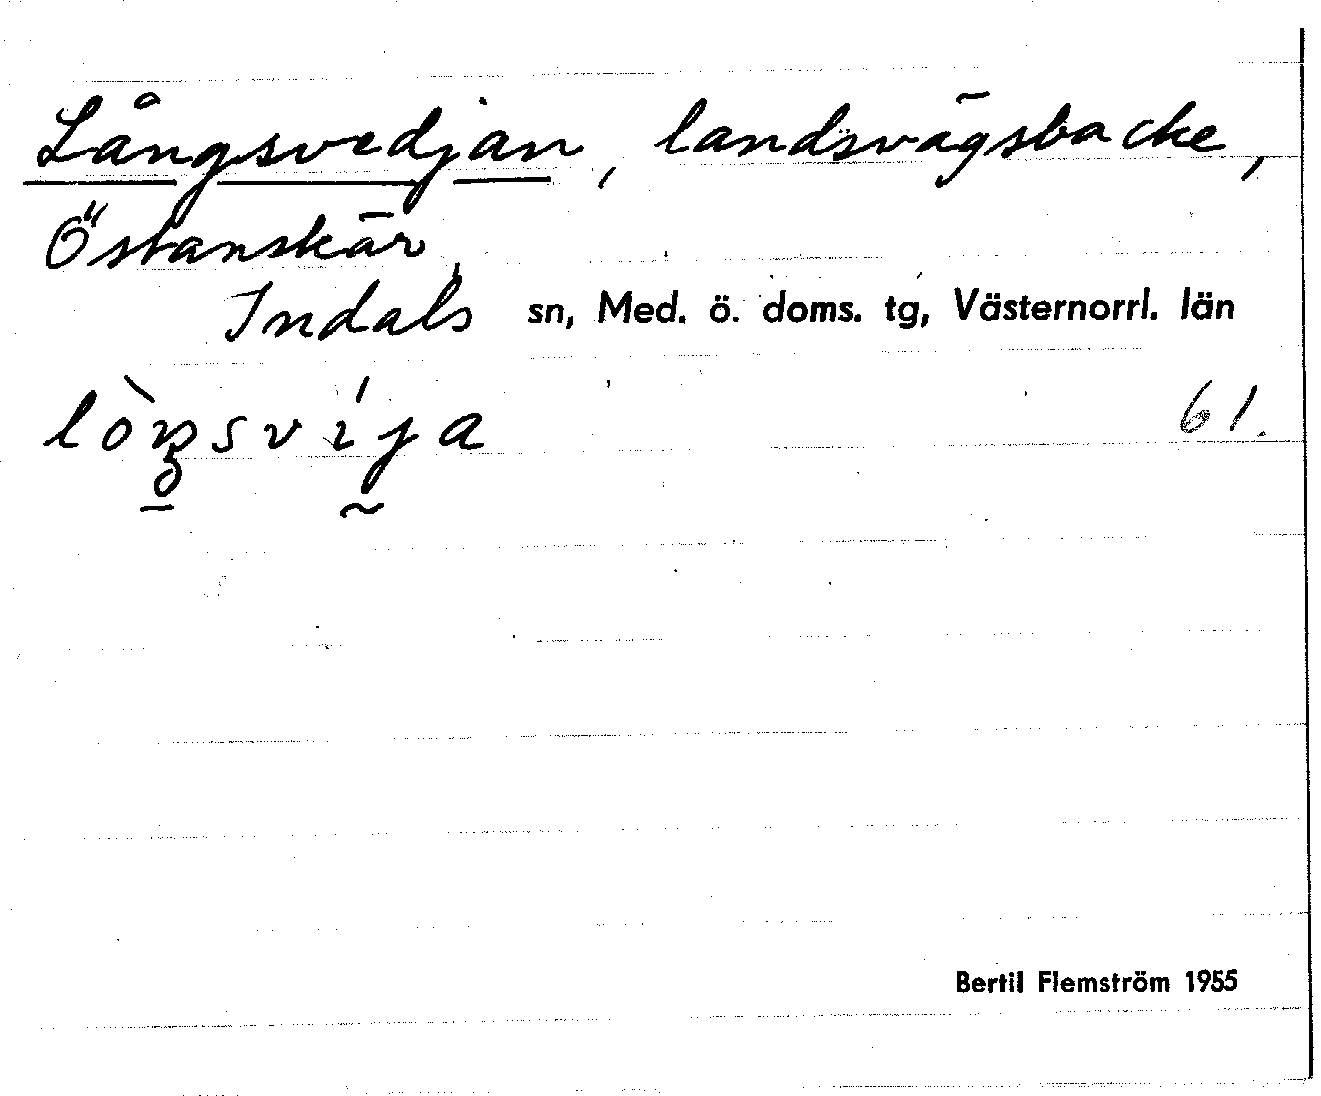 Långsvedjan, landsvägsbacke,
Östanskär,
Indals sn, Med. ö. doms. tg, Västernorrl. län
61.
Bertil Flemström 1955